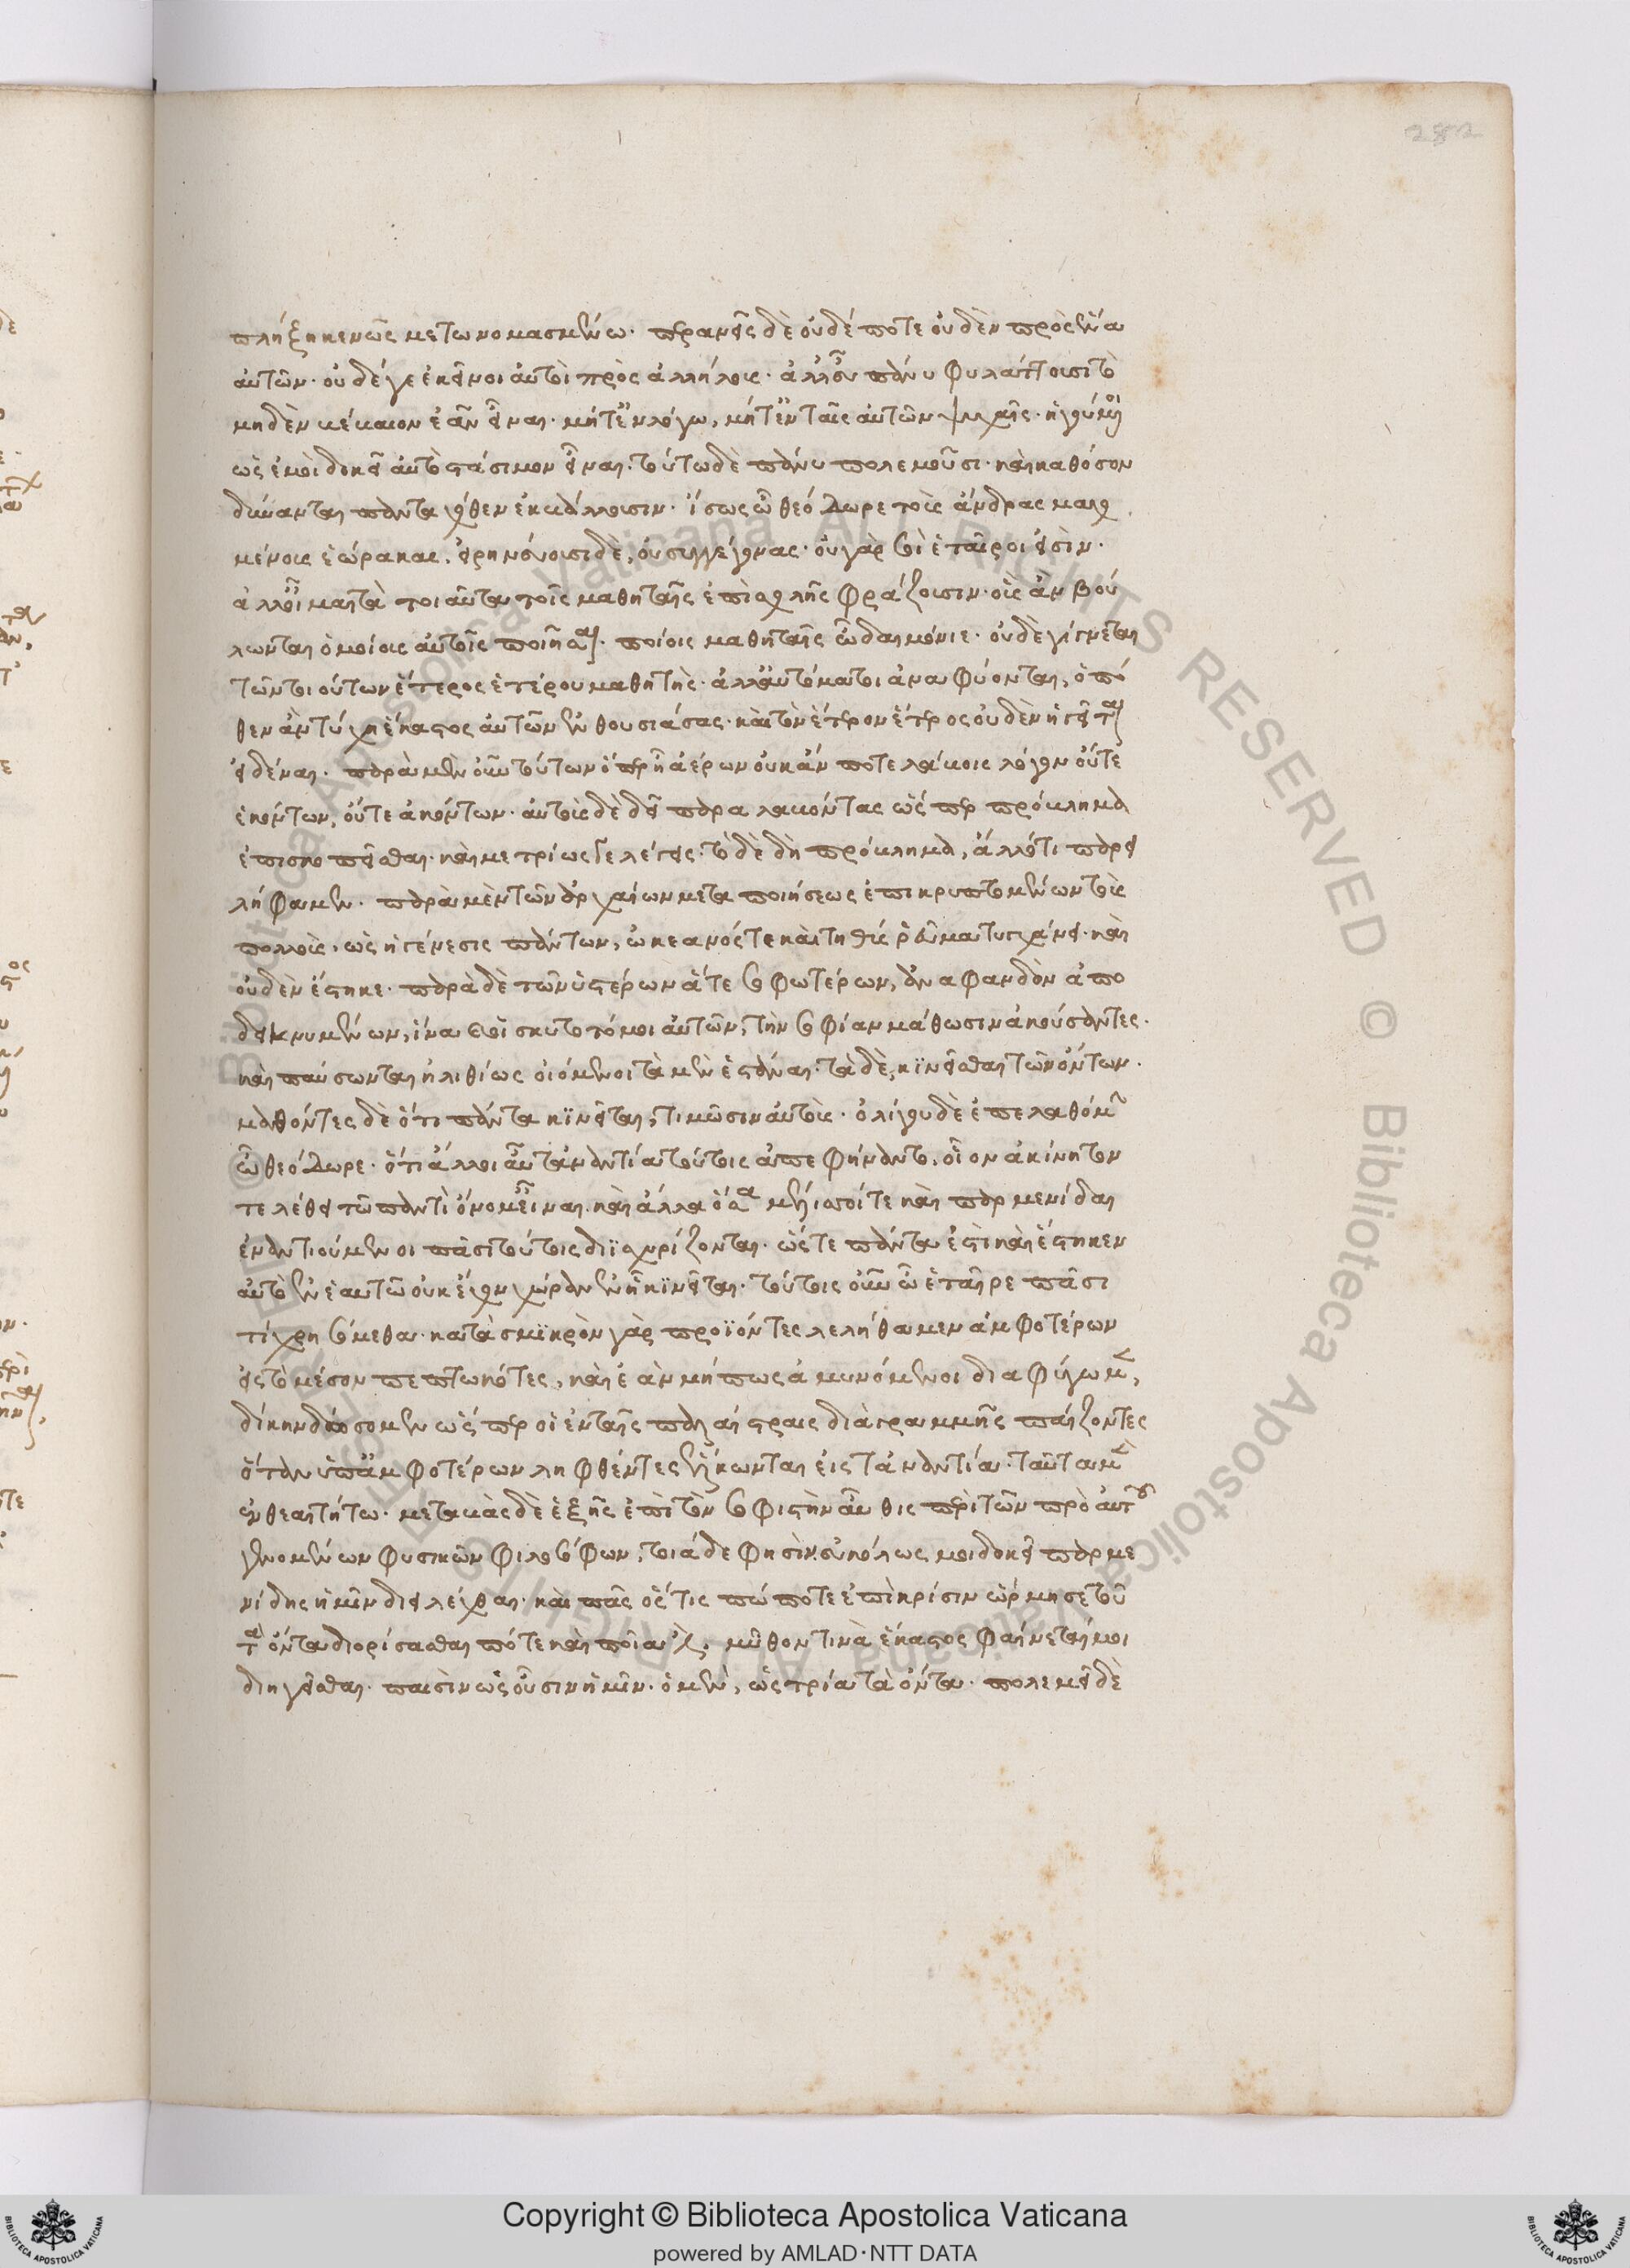 282
πλήξῃ κενῶς μετωνομασμένω· περανεῖς δὲ οὐδέποτε οὐδὲν πρὸς ἕνα
αὐτῶν· οὐδέ γε ἐκεῖνοι αὐτοὶ πρὸς ἀλλήλους· ἀλλ' εὖ πάνυ φυλάττουσι τὸ
μηδὲν βέβαιον ἐᾶν εἶναι· μήτ' ἐν λόγω, μήτ' ἐν ταῖς αὐτῶν ψυχαῖς· ἡγούμενοι
ὡς ἐμοὶ δοκεῖ αὐτὸ στάσιμον εἶναι· τούτω δὲ πάνυ πολεμοῦσι· καὶ καθόσον
δύνανται πανταχόθεν ἐκβάλλουσιν· ἴσως ὦ θεόδωρε τοὺς ἄνδρας μαχο
μένους ἑώρακας, εἰρηνεύουσι δὲ, οὐ συγγέγονας· οὐ γὰρ σοὶ ἑταῖροι εἰσίν·
ἀλλ' οἶμαι τὰ τοιαῦτα τοῖς μαθηταῖς ἐπὶ σχολῆς φράζουσιν· οὓς ἂν βού
λωνται ὁμοίους αὑτοῖς ποιῆσαι· ποίοις μαθηταῖς ὦ δαιμόνιε· οὐδὲ γίγνεται
τῶν τοιούτων ἕτερος ἑτέρου μαθητὴς· ἀλλ' αὐτόματοι ἀναφύονται, ὁπό
θεν ἂν τύχη ἕκαστος αὐτῶν ἐνθουσιάσας· καὶ τὸν ἕτερον ἕτερος οὐδὲν ἡγεῖται
εἰδέναι· παρὰ μὲν οὖν τούτων ὅπερ ἦα ἐρῶν οὐκ ἄν ποτε λάβοις λόγον οὔτε
ἑκόντων, οὔτε ἀκόντων· αὐτοὺς δὲ δεῖ παραλαβόντας ὥσπερ πρόβλημα
ἐπισκοπεῖσθαι· καὶ μετρίως γε λέγεις· τὸ δὲ δὴ πρόβλημα, ἄλλότι παρει
λήφαμεν· παρὰ μὲν τῶν ἀρχαίων μετα ποιήσεως ἐπικρυπτομένων τοὺς
πολλοὺς, ὡς ἡ γένεσις πάντων, ὠκεανός τε καὶ τηθύς ῥεύματα τυγχάνει· καὶ
οὐδὲν ἕστηκε· παρὰ δὲ τῶν ὑστέρων ἅτε σοφωτέρων, ἀναφανδὸν ἀπο
δεικνυμένων, ἵνα οἱ σκυτοτόμοι αὐτῶν, τὴν σοφίαν μάθωσιν ἀκούσαντες·
καὶ παύσωνται ἠλιθίως οἰόμενοι τὰ μὲν ἑστάναι· τὰ δὲ, κϊνεῖσθαι τῶν ὄντων·
μαθόντες δὲ ὅτι πάντα κϊνεῖται, τιμῶσιν αὐτοὺς· ὀλίγου δὲ ἐπελαθόμην
ὦ θεόδωρε· ὅτι ἄλλοι αὖ τἀναντία τούτοις ἀπεφήναντο, οἷον ἀκίνητον
τελέθει τῶ παντὶ ὄνομ' εἶναι· καὶ ἄλλα ὅσα μέλισσοί τε καὶ παρμενίδαι
ἐναντιούμενοι πᾶσι τούτοις διϊσχυρίζονται· ὥς τε πάντα ἐστὶ καὶ ἕστηκεν
αὐτὸ ἐν ἑαυτῶ οὐκ ἔχον χώραν ἐν ἧ κϊνεῖται· τούτοις οὖν ὦ ἑταῖρε πᾶσι
τί χρησόμεθα· κατὰ σμϊκρὸν γὰρ προϊόντες λελήθαμεν ἀμφοτέρων
εἰς τὸ μέσον πεπτωκότες, καὶ ἐὰν μή πως ἀμυνόμενοι διαφύγωμεν,
δίκην δώσομεν ὥσπερ οἱ ἐν ταῖς παλαίστραις διὰ γραμμῆς παίζοντες
ὅταν ὑπ' ἀμφοτέρων ληφθέντες ἕλκωνται εἰς τἀναντία· ταῦτα μὲν
ἐν θεαιτήτω· μεταβὰς δὲ ἑξῆς ἐπὶ τὸν σοφιστὴν αὖθις περὶ τῶν πρὸ αὐτοῦ
γενομένων φυσικῶν φιλοσόφων, τοιάδε φησὶν· εὐκόλως μοι δοκεῖ παρμε
νίδης ἡμῖν διειλέχθαι· καὶ πᾶς ὅστις πώποτε ἐπὶ κρίσιν ὥρμησε τοῦ
τὰ ὄντα διορίσασθαι πότε καὶ ποῖα μῦθον τινὰ ἕκαστος φαίνεταί μοι
διηγεῖσθαι· παισὶν ὡς οὖσιν ἡμῖν· ὁ μὲν, ὡς τρία τὰ ὄντα· πολεμεῖ δὲ
Copyright © Biblioteca Apostolica Vaticana
powered by AMLAD·NTT DATA